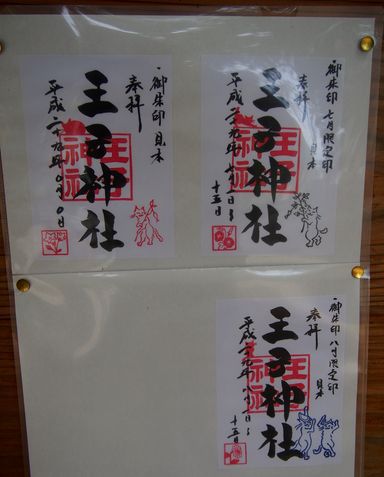 ・御朱印 見本
奉拝
王子神社
平成二十九年〇月〇日
・御朱印 七月限定印
見本
奉拝
王子神社
平成二十九年七月一日〜
十五日
・御朱印 八月限定印
見本
奉拝
王子神社
平成二十九年八月一日〜
十五日